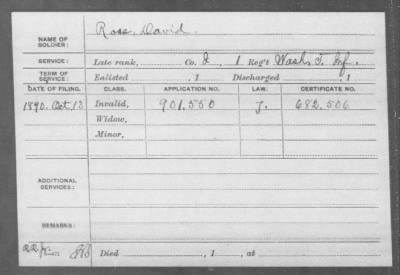 NAME OF SOLDIER: Ross, David.
SERVICE: Late rank, Co. I, 1 Reg't Wash. T. Inf.
TERM OF SERVICE: Enlisted , 1 Discharged , 1
DATE OF FILING. CLASS. APPLICATION NO. LAW. CERTIFICATE NO.
1890. Oct. 13 Invalid, 901,550 J. 682,506
Widow,
Minor,
ADDITIONAL SERVICES:
REMARKS:
Died , 1 , at